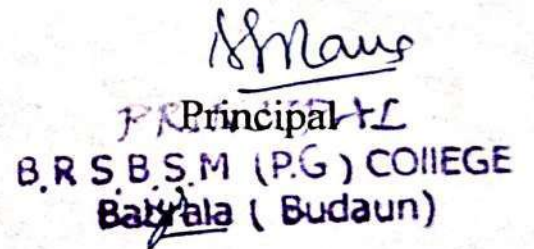 Principal
PRINCIPAL
B.R S.B.S.M (P.G) COllEGE
Babrala ( Budaun)